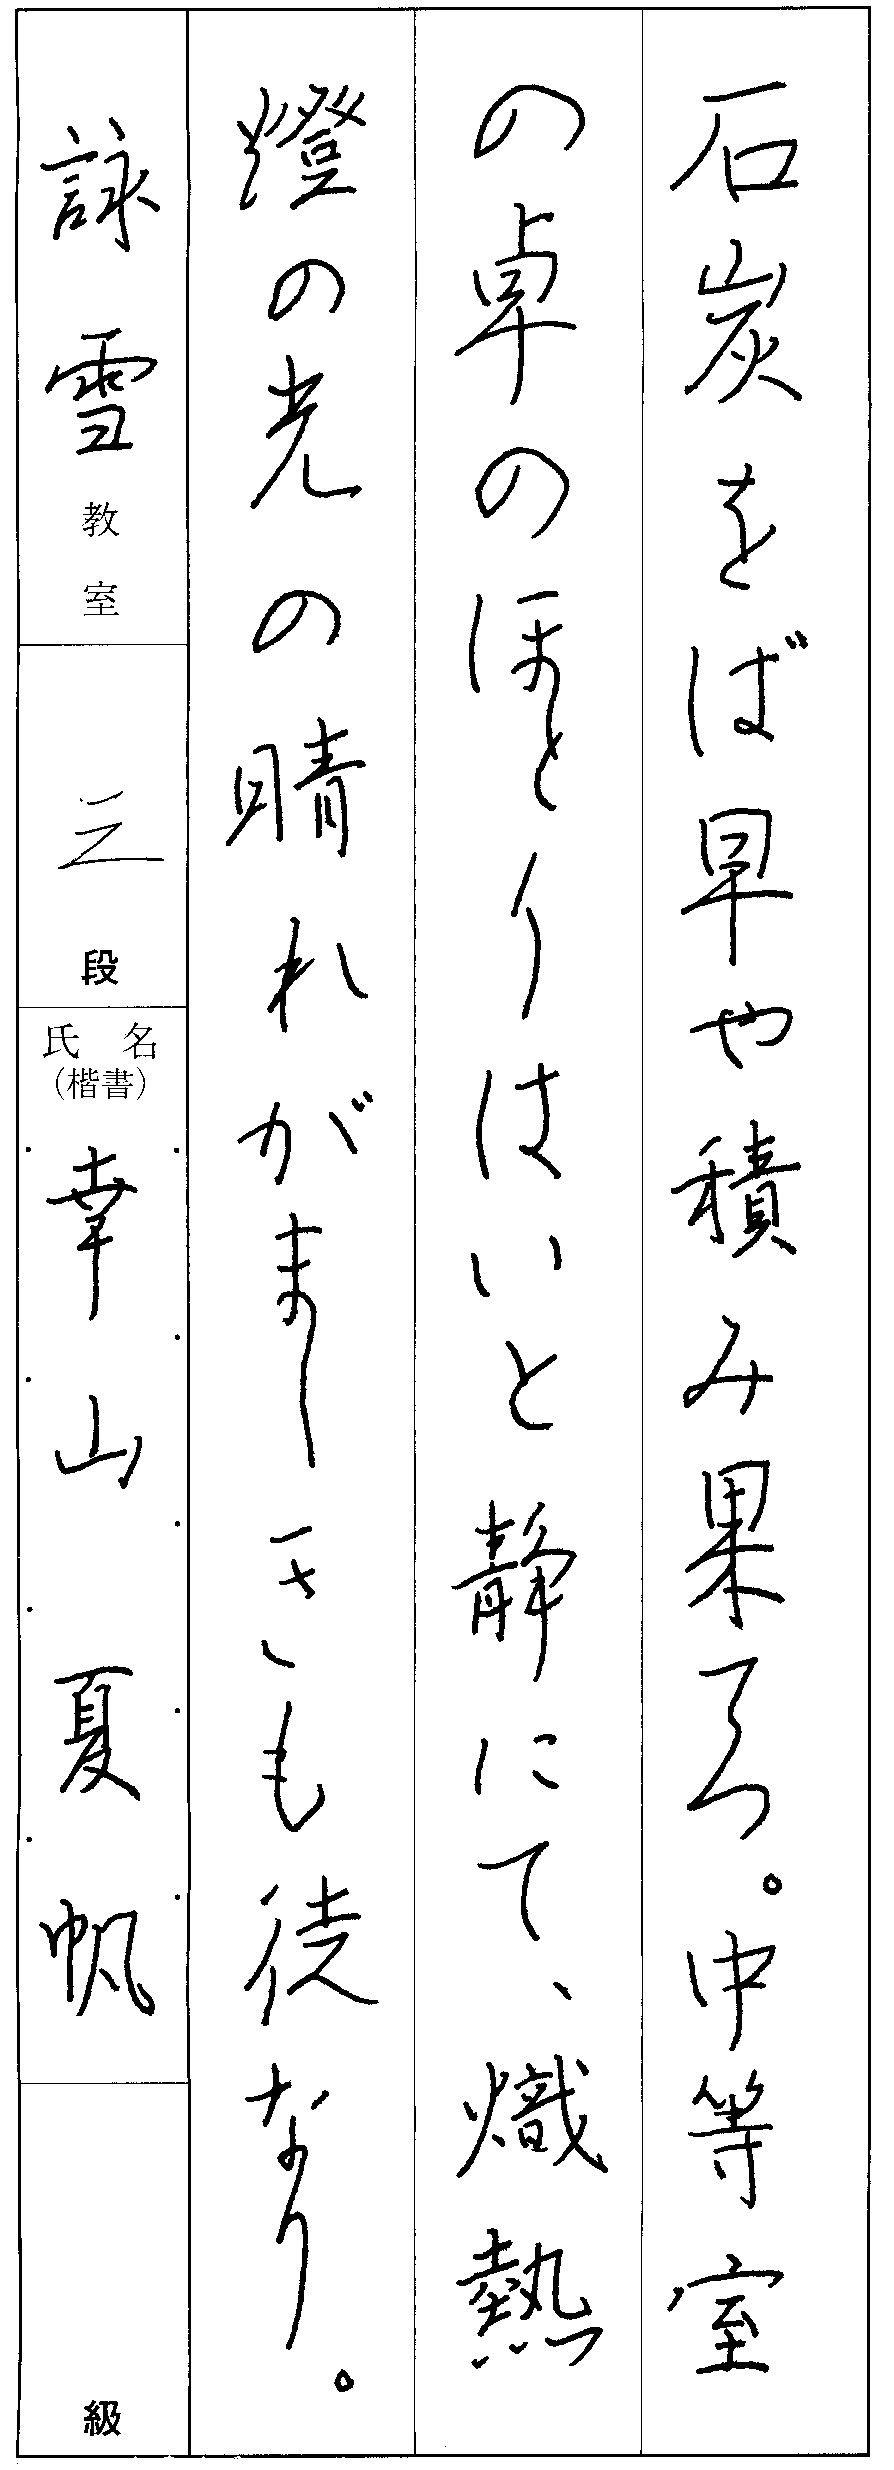 石炭をば早や積み果てつ。中等室
の卓のほとりはいと静にて、熾熱
燈の光の晴れがましきも徒なり。
詠雪教室
三段
氏名
(楷書)
幸山夏帆
級